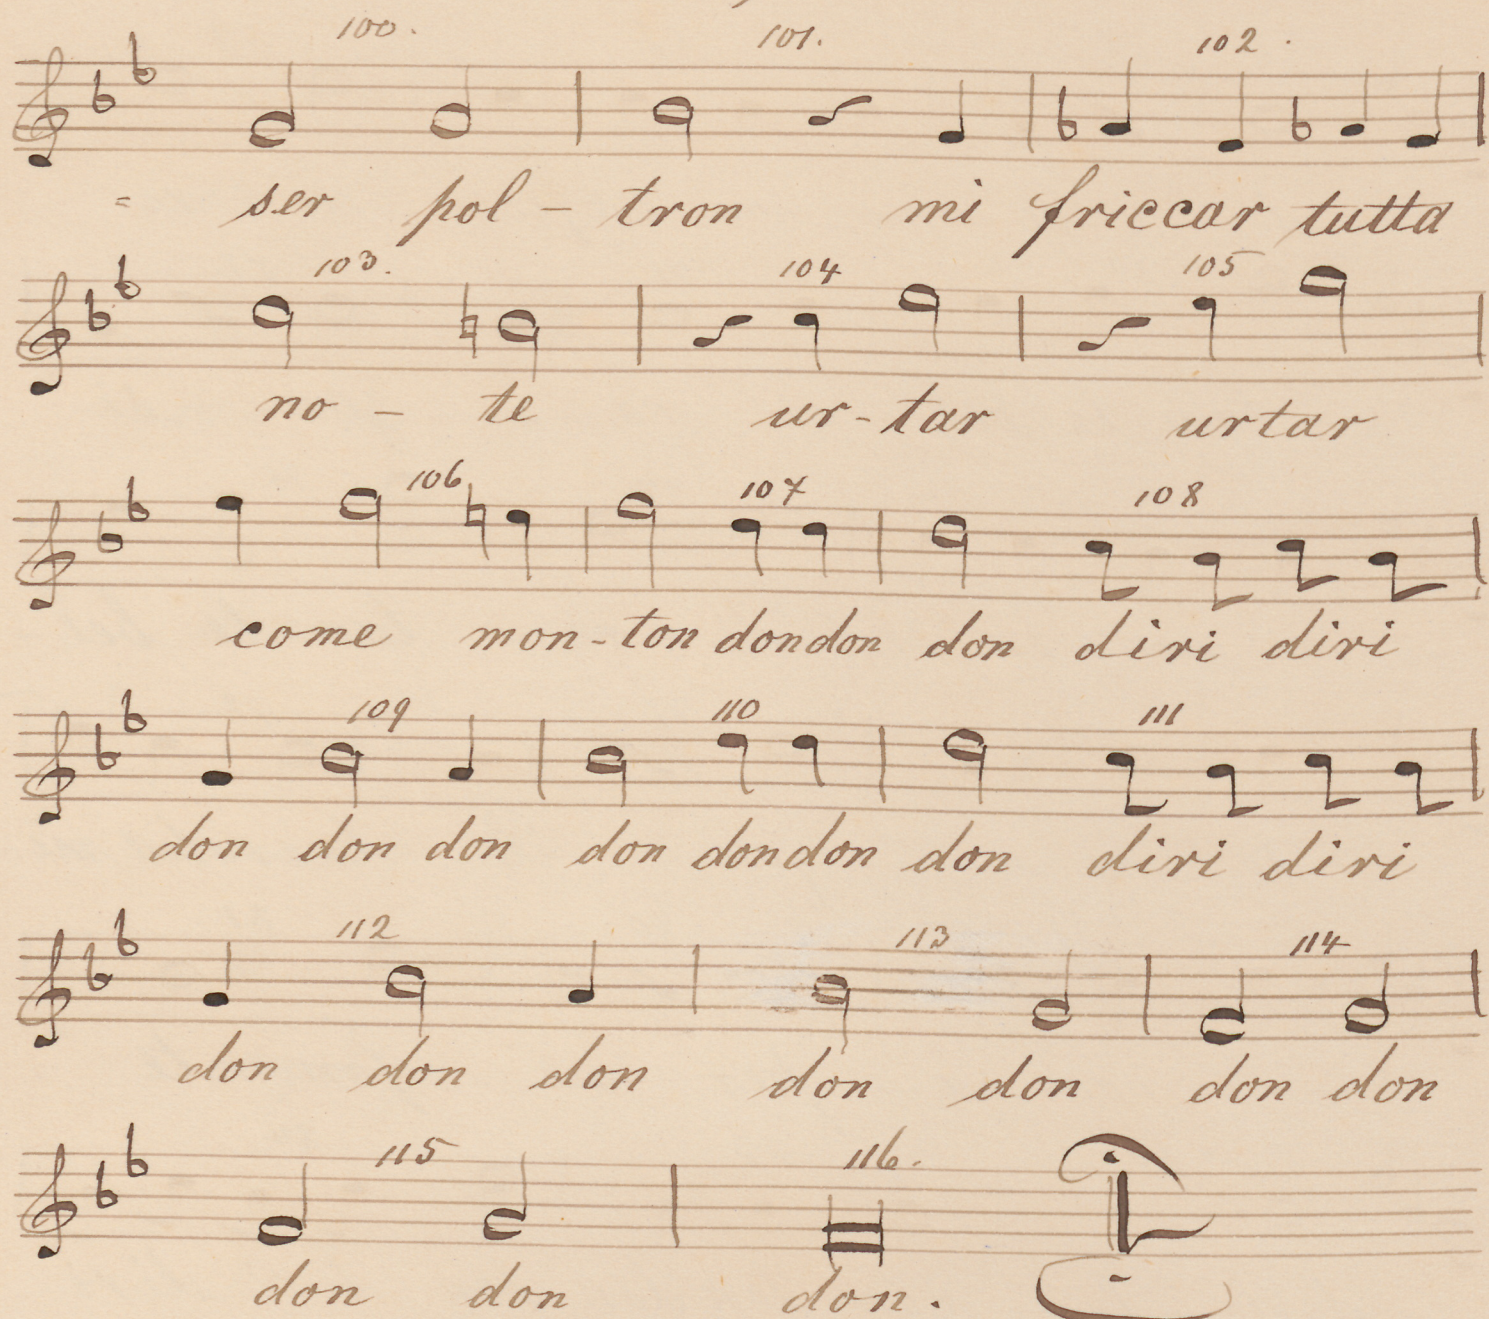 100. 101. 102.
= ser pol - tron mi friccar tutta
103. 104 105
no - te ur - tar urtar
106 107 108
come mon - ton don don don diri diri
109 110 111
don don don don don don don diri diri
112 113 114
don don don don don don don
115 116.
don don don.